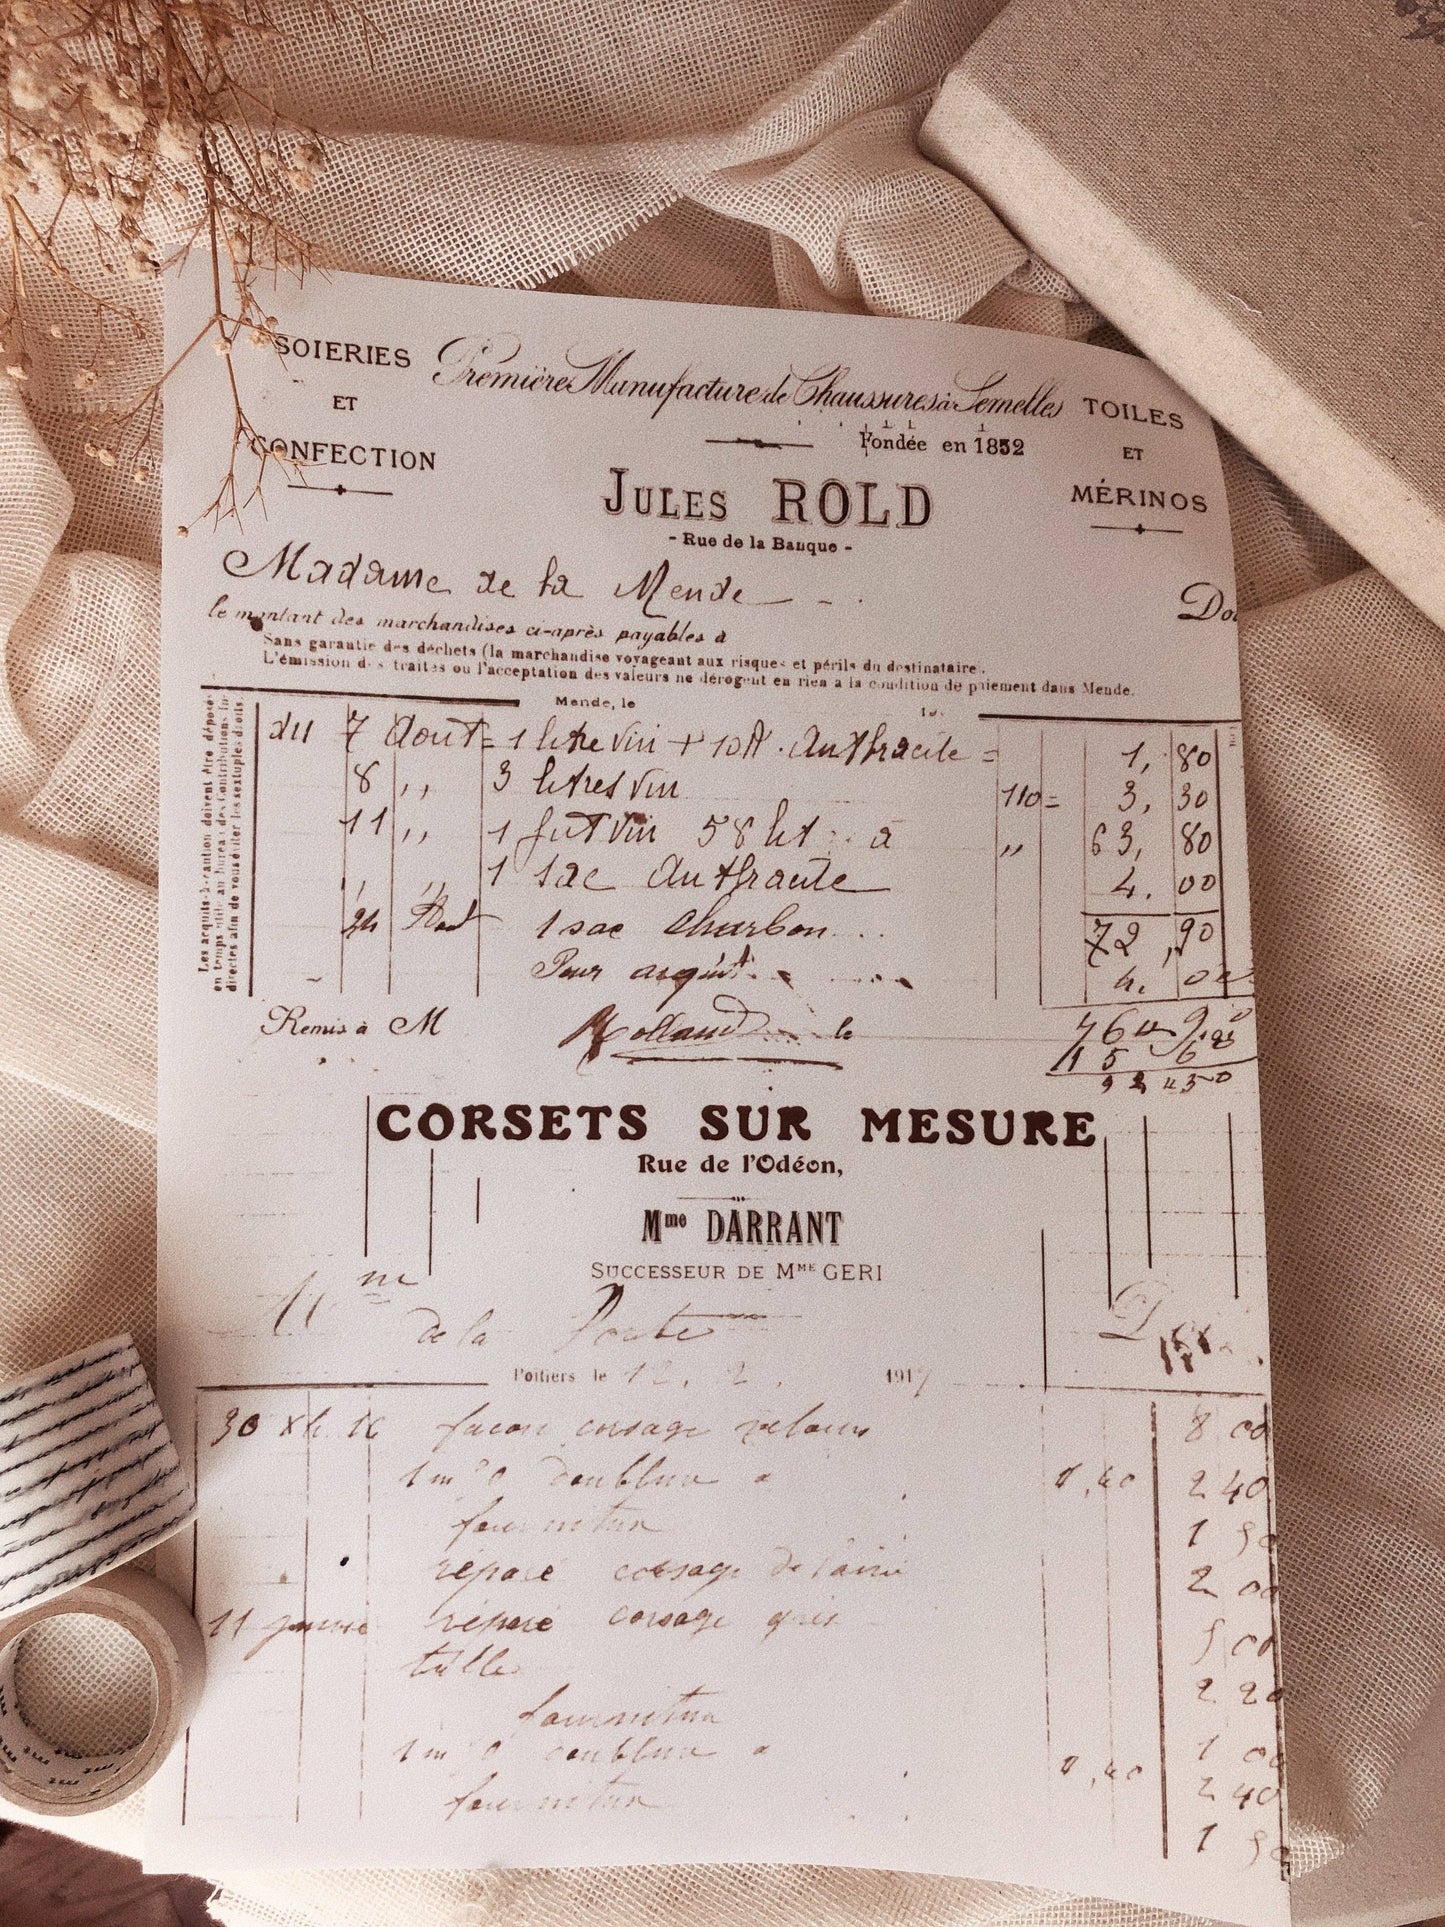 SOIERIES ET CONFECTION
Première Manufacture de Chaussures à Semelles
TOILES ET MÉRINOS
Fondée en 1852
JULES ROLD
- Rue de la Banque -
Madame de la Mende
Doi
le montant des marchandises ci-après payables à
Sans garantie des déchets (la marchandise voyageant aux risques et périls du destinataire.
L'émission des traites ou l'acceptation des valeurs ne dérogent en rien à la condition de paiement dans Mende.
Mende, le 19
Les acquits-à-caution doivent être déposés
en temps utile au bureau des Contributions In-
directes afin de vous éviter les sextuples droits
du 7 Aout = 1 litre vin + 10 . Anthracite = 1, 80
8 ,, 3 litres vin 110 = 3, 30
11 ,, 1 fut vin 58 lit à ,, 63, 80
,, ,, 1 sac Anthracite 4. 00
24 Aout 1 sac charbon 72, 90
Pour 4. 00
Remis à M Rolland le 76 90
15 6
92 50
CORSETS SUR MESURE
Rue de l'Odéon,
Mme DARRANT
SUCCESSEUR DE MME GERI
M me
de la Porte
D
Poitiers le 12. 2. 1917
30 façon corsage velours 8 00
1 m doublure a 2 40
fourniture 1 50
réparé corsage de 2 00
11 janvier réparé corsage gris 5 00
tulle 2 20
fourniture 1 00
1 m doublure a 2 40
fourniture 1 50
mt mt